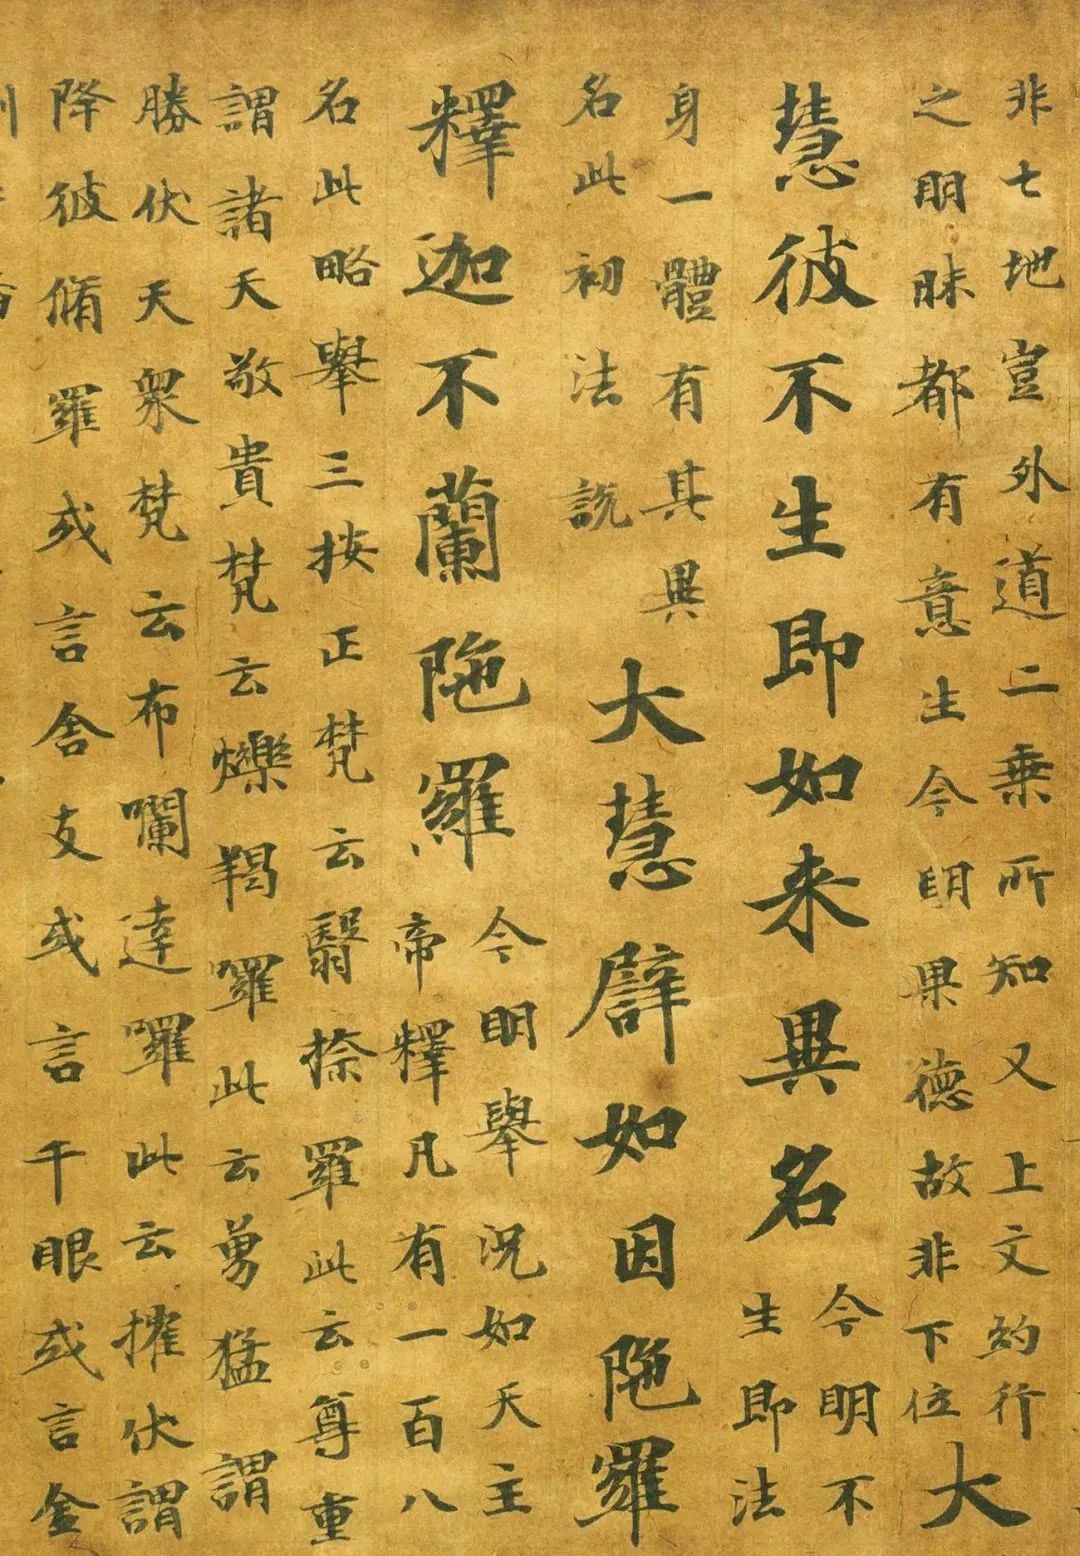 非七地豈外道二乗所知又上文約行
之明昧都有意生今明果德故非下位
大
慧彼不生即如来異名
今明不
生即法
身一體有其異
名此初法說
大慧譬如因陁羅
釋迦不蘭陁羅
今明舉況如天主
帝釋凡有一百八
名此略舉三按正梵云翳捺羅此云尊重
謂諸天敬貴梵云爍羯囉此云勇猛謂
勝伏天衆梵云布囒達囉此云摧伏謂
降彼脩羅或言舍支或言千眼或言金